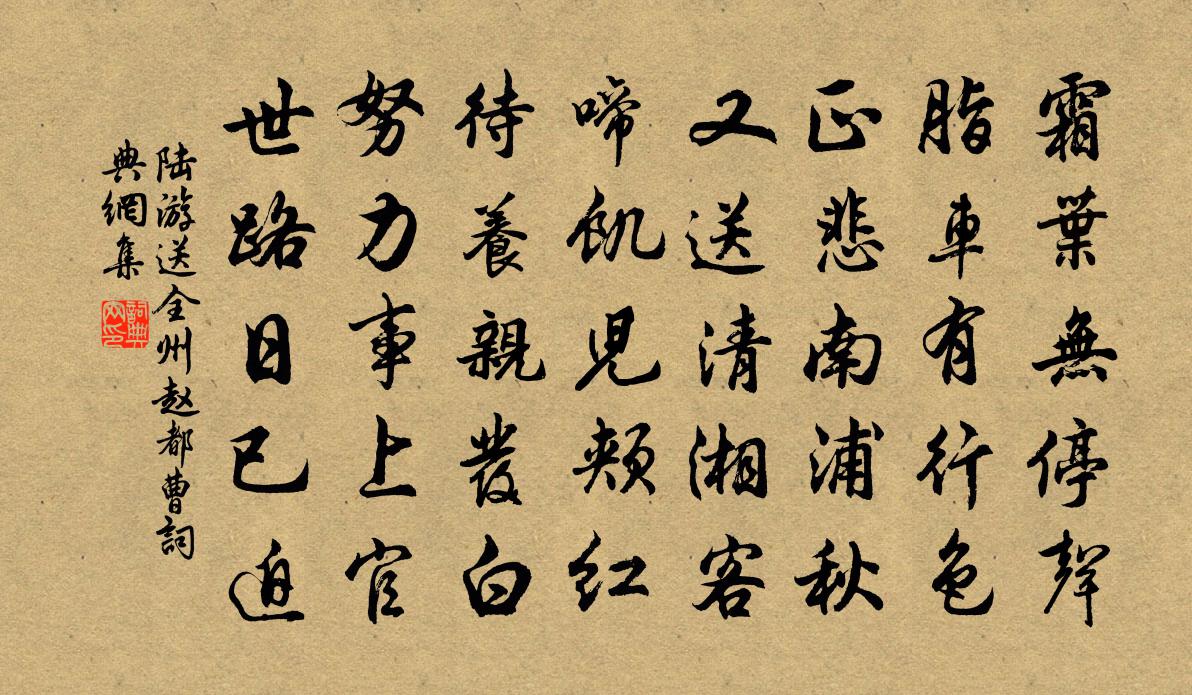 霜葉無停聲
脂車有行色
正悲南浦秋
又送清湘客
啼飢児頰紅
待養親髮白
努力事上官
世路日已迫
陸游送全州赵都曹詞
典網集
詞典
网印